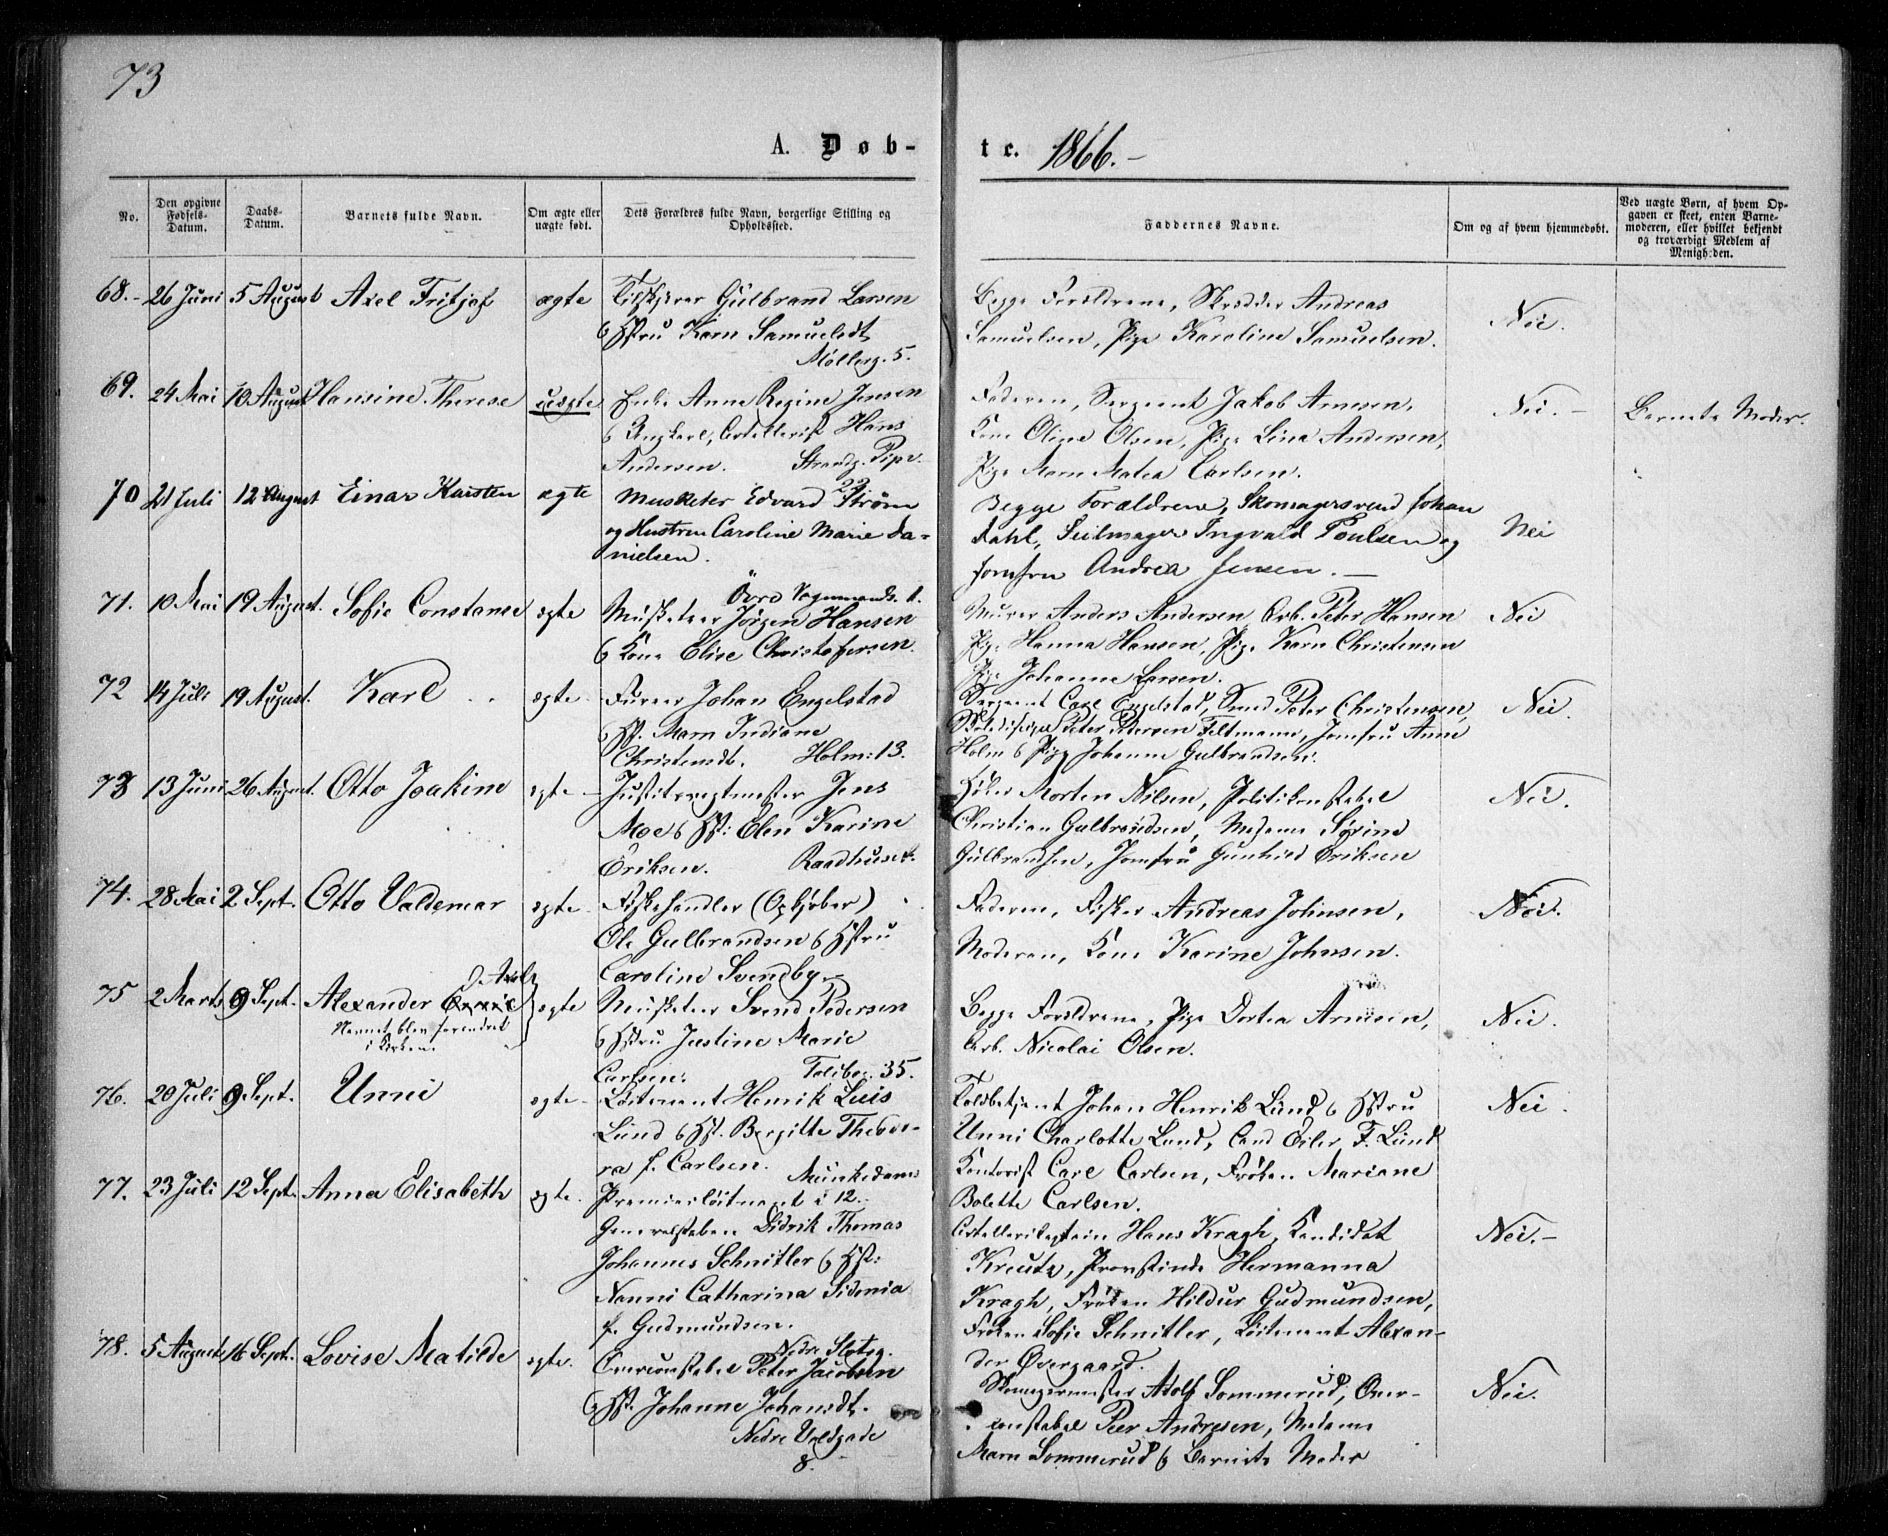 73
A. Døb-
te. 1866.-
No.
Den opgivne Fødsels-Datum.
Daabs-Datum.
Barnets fulde Navn.
Om ægte eller uægte født.
Dets Forældres fulde Navn, borgerlige Stilling og Opholdssted.
Faddernes Navne.
Om og af hvem hjemmedøbt.
Ved uægte Børn, af hvem Opgaven er skeet, enten Barnemoderen, eller hvilket bekjendt og troværdigt Medlem af Menigheden.
68.- 26 Juni 5 August Axel Fritjof ægte Gulbrand Larsen
& Hstru Karn Samuelsdt,
Møllerg. 5.
Begge Forældrene, Skrædder Andreas
Samuelsen, Pige Karoline Samuelsen.
Nei.
69. 24 Mai 10 August Hansine Therese uægte Enke Anne Regine Jensen
& Ungkarl, Artillerist Hans
Andersen. Strandg. Piperv.
22.
Faderen, Sergeant Jakob Arnesen,
Kone Oline Olsen, Pige Lina Andersen,
Pige Maren Matea Carlsen.
Nei.- Barnets Moder.
70 21 Juli 12 August Einar Karsten ægte Musketer Edvard Strøm
og Hustru Caroline Marie Da=
nielsen.
Begge Forældrene, Skomagersvend Johan
Dahl, Seilmager Ingvald Poulsen og
Jomfru Andrea Jensen.-
Nei
71. 10 Mai 19 August. Sofie Constanse ægte
Øvre Vognmandsg. 1.
Musketeer Jörgen Hansen
& Kone Elise Christofersen.
Murer Anders Andersen, Arb. Peter Hansen
Pige Hanna Hansen, Pige Karn Christensen
Pige Johanne Larsen.
Nei
72 14 Juli 19 August. Karl ægte Furer Johan Engelstad
& Hst. Maren Indiane
Christensdt. Holm: 13.
Sergeant Carl Engelstad, Svend Peter Christensen,
Peter Pedersen Feltmann, Jomfru Anne
Holm & Pige Johanne Gulbrandsen.
Nei.
73 13 Juni 26 August. Otto Joakim ægte Jens
Moe & Hst: Elen Karine
Eriksen. Raadhusgt.
Morten Nilsen, Politikonstabel
Christian Gulbrandsen, Madame Sørine
Gulbrandsen, Jomfru Gunhild Eriksen
Nei.
74. 28 Mai 2 Sept. Otto Valdemar ægte Fiskehandler (Opkjøber)
Ole Gulbrandsen & Hstru
Caroline Svendby
Faderen, Fisker Andreas Johnsen,
Moderen, Kone Karine Johnsen.
Nei.
75 2 Marts 9 Sept. Alexander ægte
Navnet blev forandret
i Kirken.
Musketeer Svend Pedersen
& Hstru Justine Marie
Carlsen. Toldbog. 35.
Begge Forældrene, Pige Dortea Arnesen,
Arb. Nicolai Olsen.
Nei.
76. 20 Juli 9 Sept. Unni ægte Løitenant Henrik Luis
Lund & Hst. Bergitte Theodo-
ra f. Carlsen. Munkedams
12.
Toldbetjent Johan Henrik Lund & Hstru
Unni Charlotte Lund, Cand Eiler F. Lund
Kontorist Carl Carlsen, Frøken Mariane
Bolette Carlsen.
Nei.
77. 23 Juli 12 Sept. Anna Elisabeth ægte. Premierløitnant i
Generalstaben Didrik Thomas
Johannes Schnitler & Hst:
Nanni Catharina Sidonia
f. Gudmundsen.
Nedre Slotsg.
Artillerikaptein Hans Kragh, Kandidat
Kreutz, Provstinde Hermanna
Kragh, Frøken Hildur Gudmundsen,
Frøken Sofie Schnitler, Löitenant Alexan-
der Övergaard.
Nei.-
78. 5 August 16 Sept. Lovise Matilde ægte. Overconstabel Peter Jacobsen
& Hst. Johanne Johansdt.
Nedre Voldgade
8.
Adolf Sommerud, Over-
constabel Peer Andresen, Madame
Maren Sommerud & Barnets Moder
Nei.